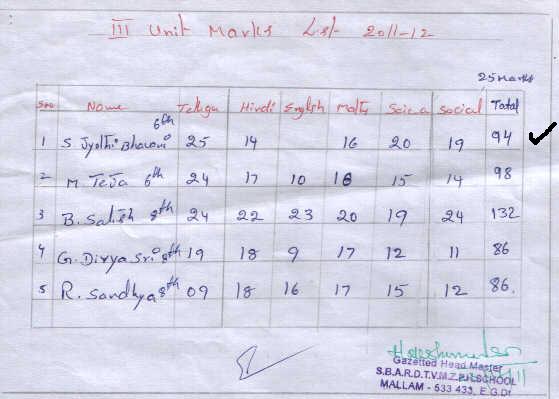 III Unit Marks List 2011-12
25 marks
Sno Name Telugu Hindi English Maths Scien Social Total
1 S. Jyothi Bhavani 6th 25 14 16 20 19 94
2 M. Teja 6th 24 17 10 18 15 14 98
3 B. Satish 8th 24 22 23 20 19 24 132
4 G. Divya Sri 8th 19 18 9 17 12 11 86
5 R. Sandhya 8th 09 18 16 17 15 12 86.
Gazetted Head Master
S.B.A.R.D.T.V.M.Z.P.H.SCHOOL
MALLAM - 533 433, E.G.Dt